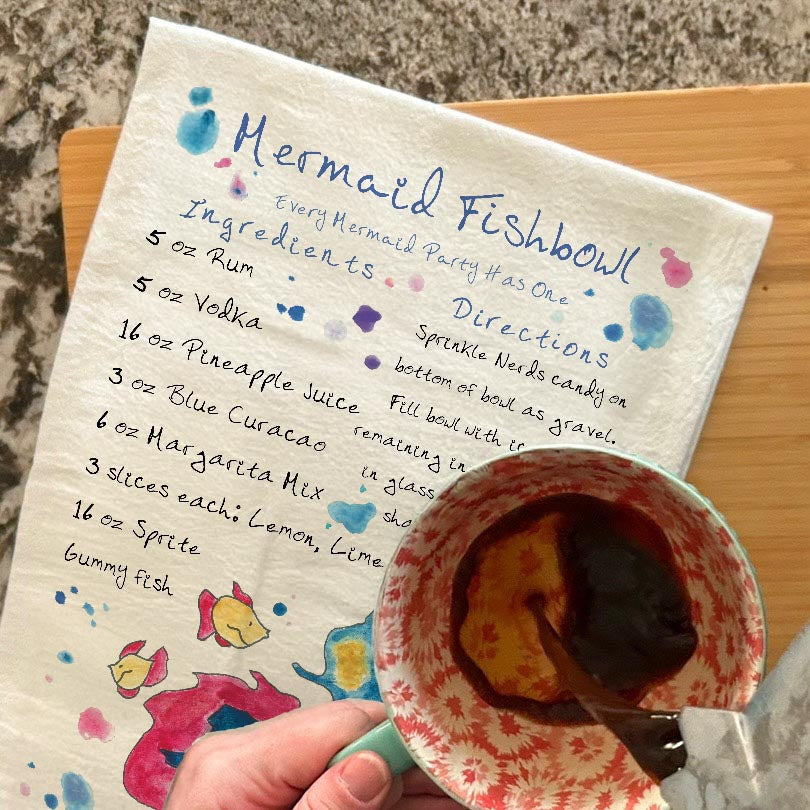 Mermaid Fishbowl
Every Mermaid Party Has One
Ingredients
5 oz Rum
5 oz Vodka
16 oz Pineapple Juice
3 oz Blue Curacao
6 oz Margarita Mix
3 slices each: Lemon, Lime
16 oz Sprite
Gummy fish
Directions
Sprinkle Nerds candy on
bottom of bowl as gravel.
Fill bowl with
remaining in
in glass